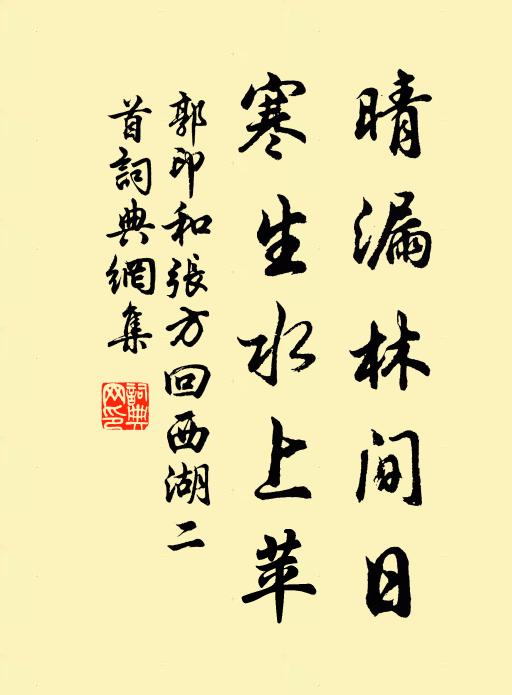 晴漏林间日
寒生水上苹
郭印和张方回西湖二
首词典網集
詞典網印